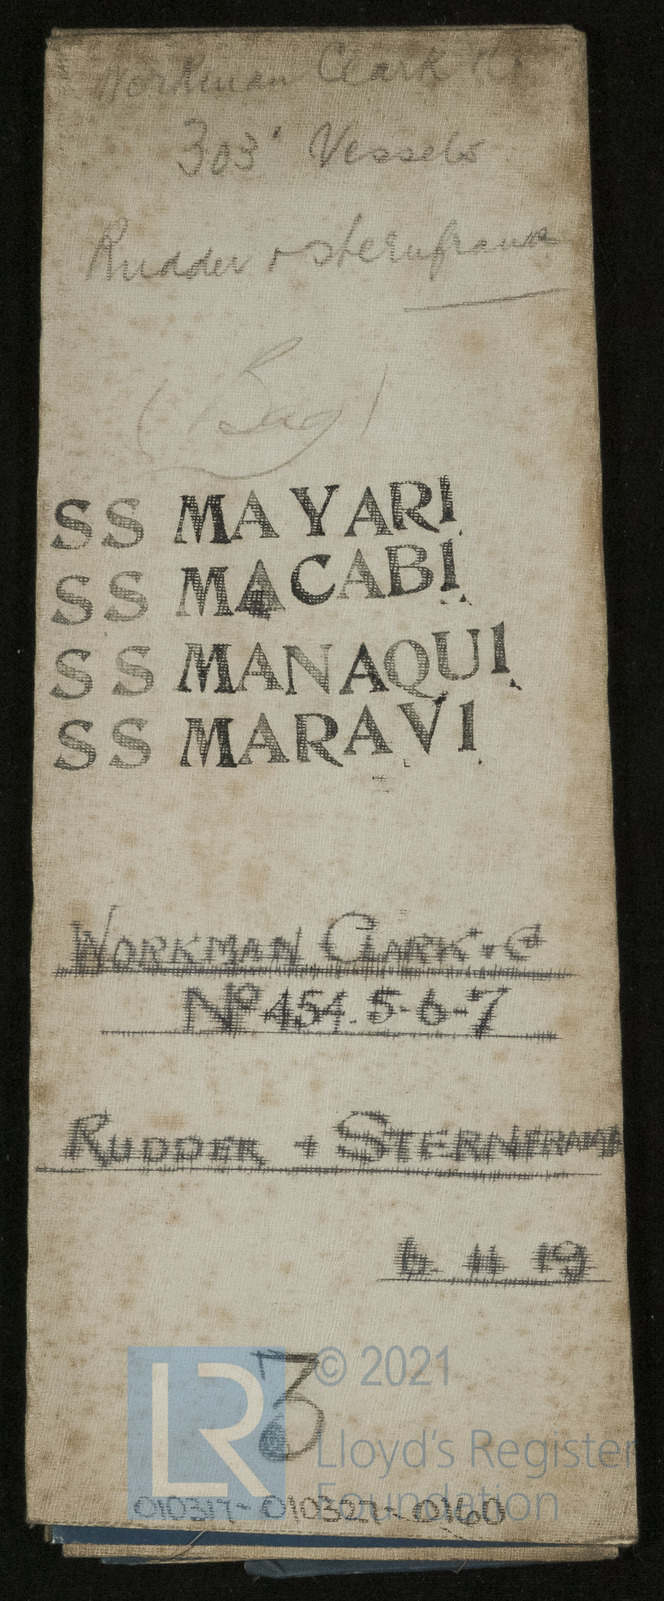 Workman Clark
303' Vessels
Rudder + sternframe
(Bag)
SS MAYARI
SS MACABI
SS MANAQUI
SS MARAVI
WORKMAN CLARK & Co
No 454.5-6-7
RUDDER + STERNFRAME
6. 11 19
3
© 2021
LR
Lloyd's Register
Foundation
010317-010327-0160